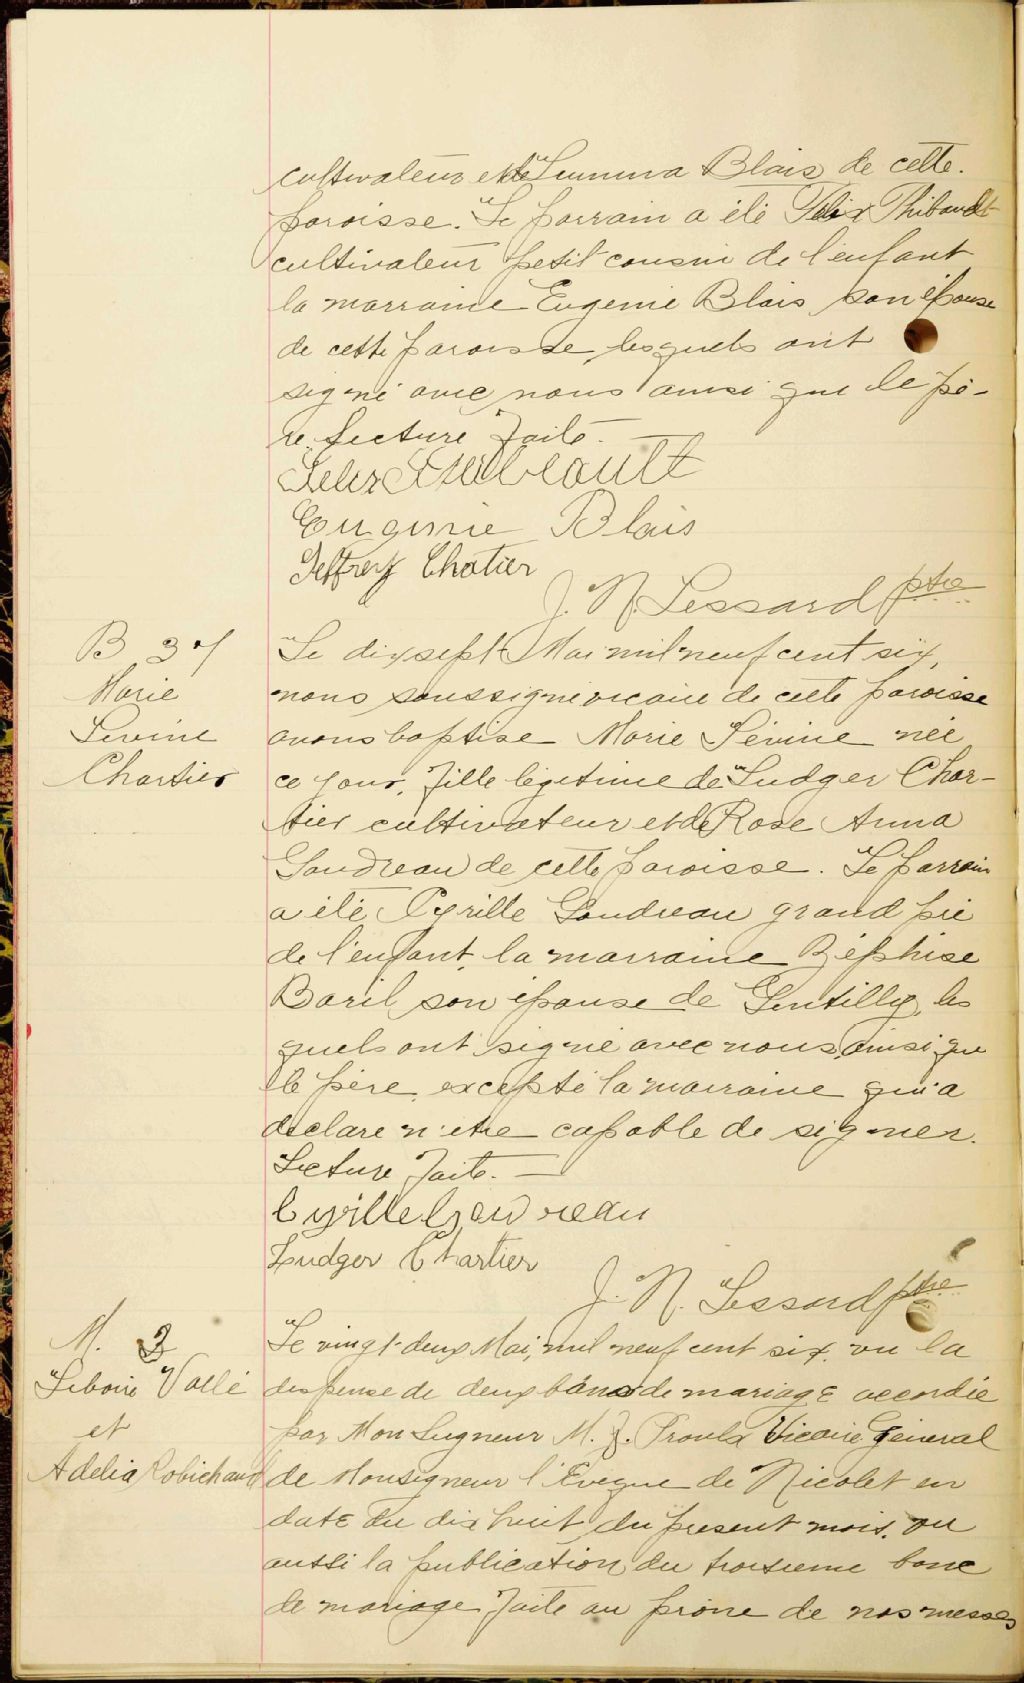 cultivateur et de Lumina Blais de cette
paroisse. Le parrain a été Félix Thibault
cultivateur petit cousin de l'enfant
la marraine Eugenie Blais son épouse
de cette paroisse, lesquels ont
signé avec nous ainsi que le pè-
re. Lecture faite. —
Felix Thibeault
Eugenie Blais
Jeffrey Chatier
J. N. Lessard ptre
B 37
Marie
Sévine
Chartier
Le dix sept Mai mil neuf cent six,
nous soussigné vicaire de cette paroisse
avons baptise Marie Sévine née
ce jour, fille légitime de Ludger Char-
tier cultivateur et de Rose Anna
Gaudreau de cette paroisse. Le parrain
a été Cyrille Gaudreau grand père
de l'enfant, la marraine Zéphise
Baril son épouse de Gentilly, les
quels ont signé avec nous, ainsi que
le père, excepté la marraine qui a
declare n'etre capable de signer.
Lecture faite. —
Cyrille Gaudreau
Ludger Chartier
J. N. Lessard ptre
M. 3
Liboire Vallé
et
Adelia Robichaud
Le vingt-deux Mai, mil neuf cent six, vu la
dispense de deux bans de mariage accordée
par Mon Seigneur M. G. Proulx Vicaire Géneral
de Monseigneur l'Eveque de Nicolet en
date du dix huit du present mois, vu
aussi la publication du troisieme banc
de mariage faite au prône de nos messes